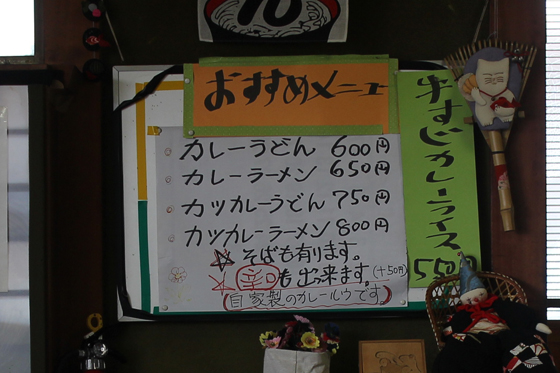 おすすめメニュー
カレーうどん 600円
カレーラーメン 650円
カツカレーうどん 750円
カツカレーラーメン 800円
☆そばも有ります。
☆辛口も出来ます。(+50円)
(自家製のカレールウです。)
牛すじカレーライス
550円